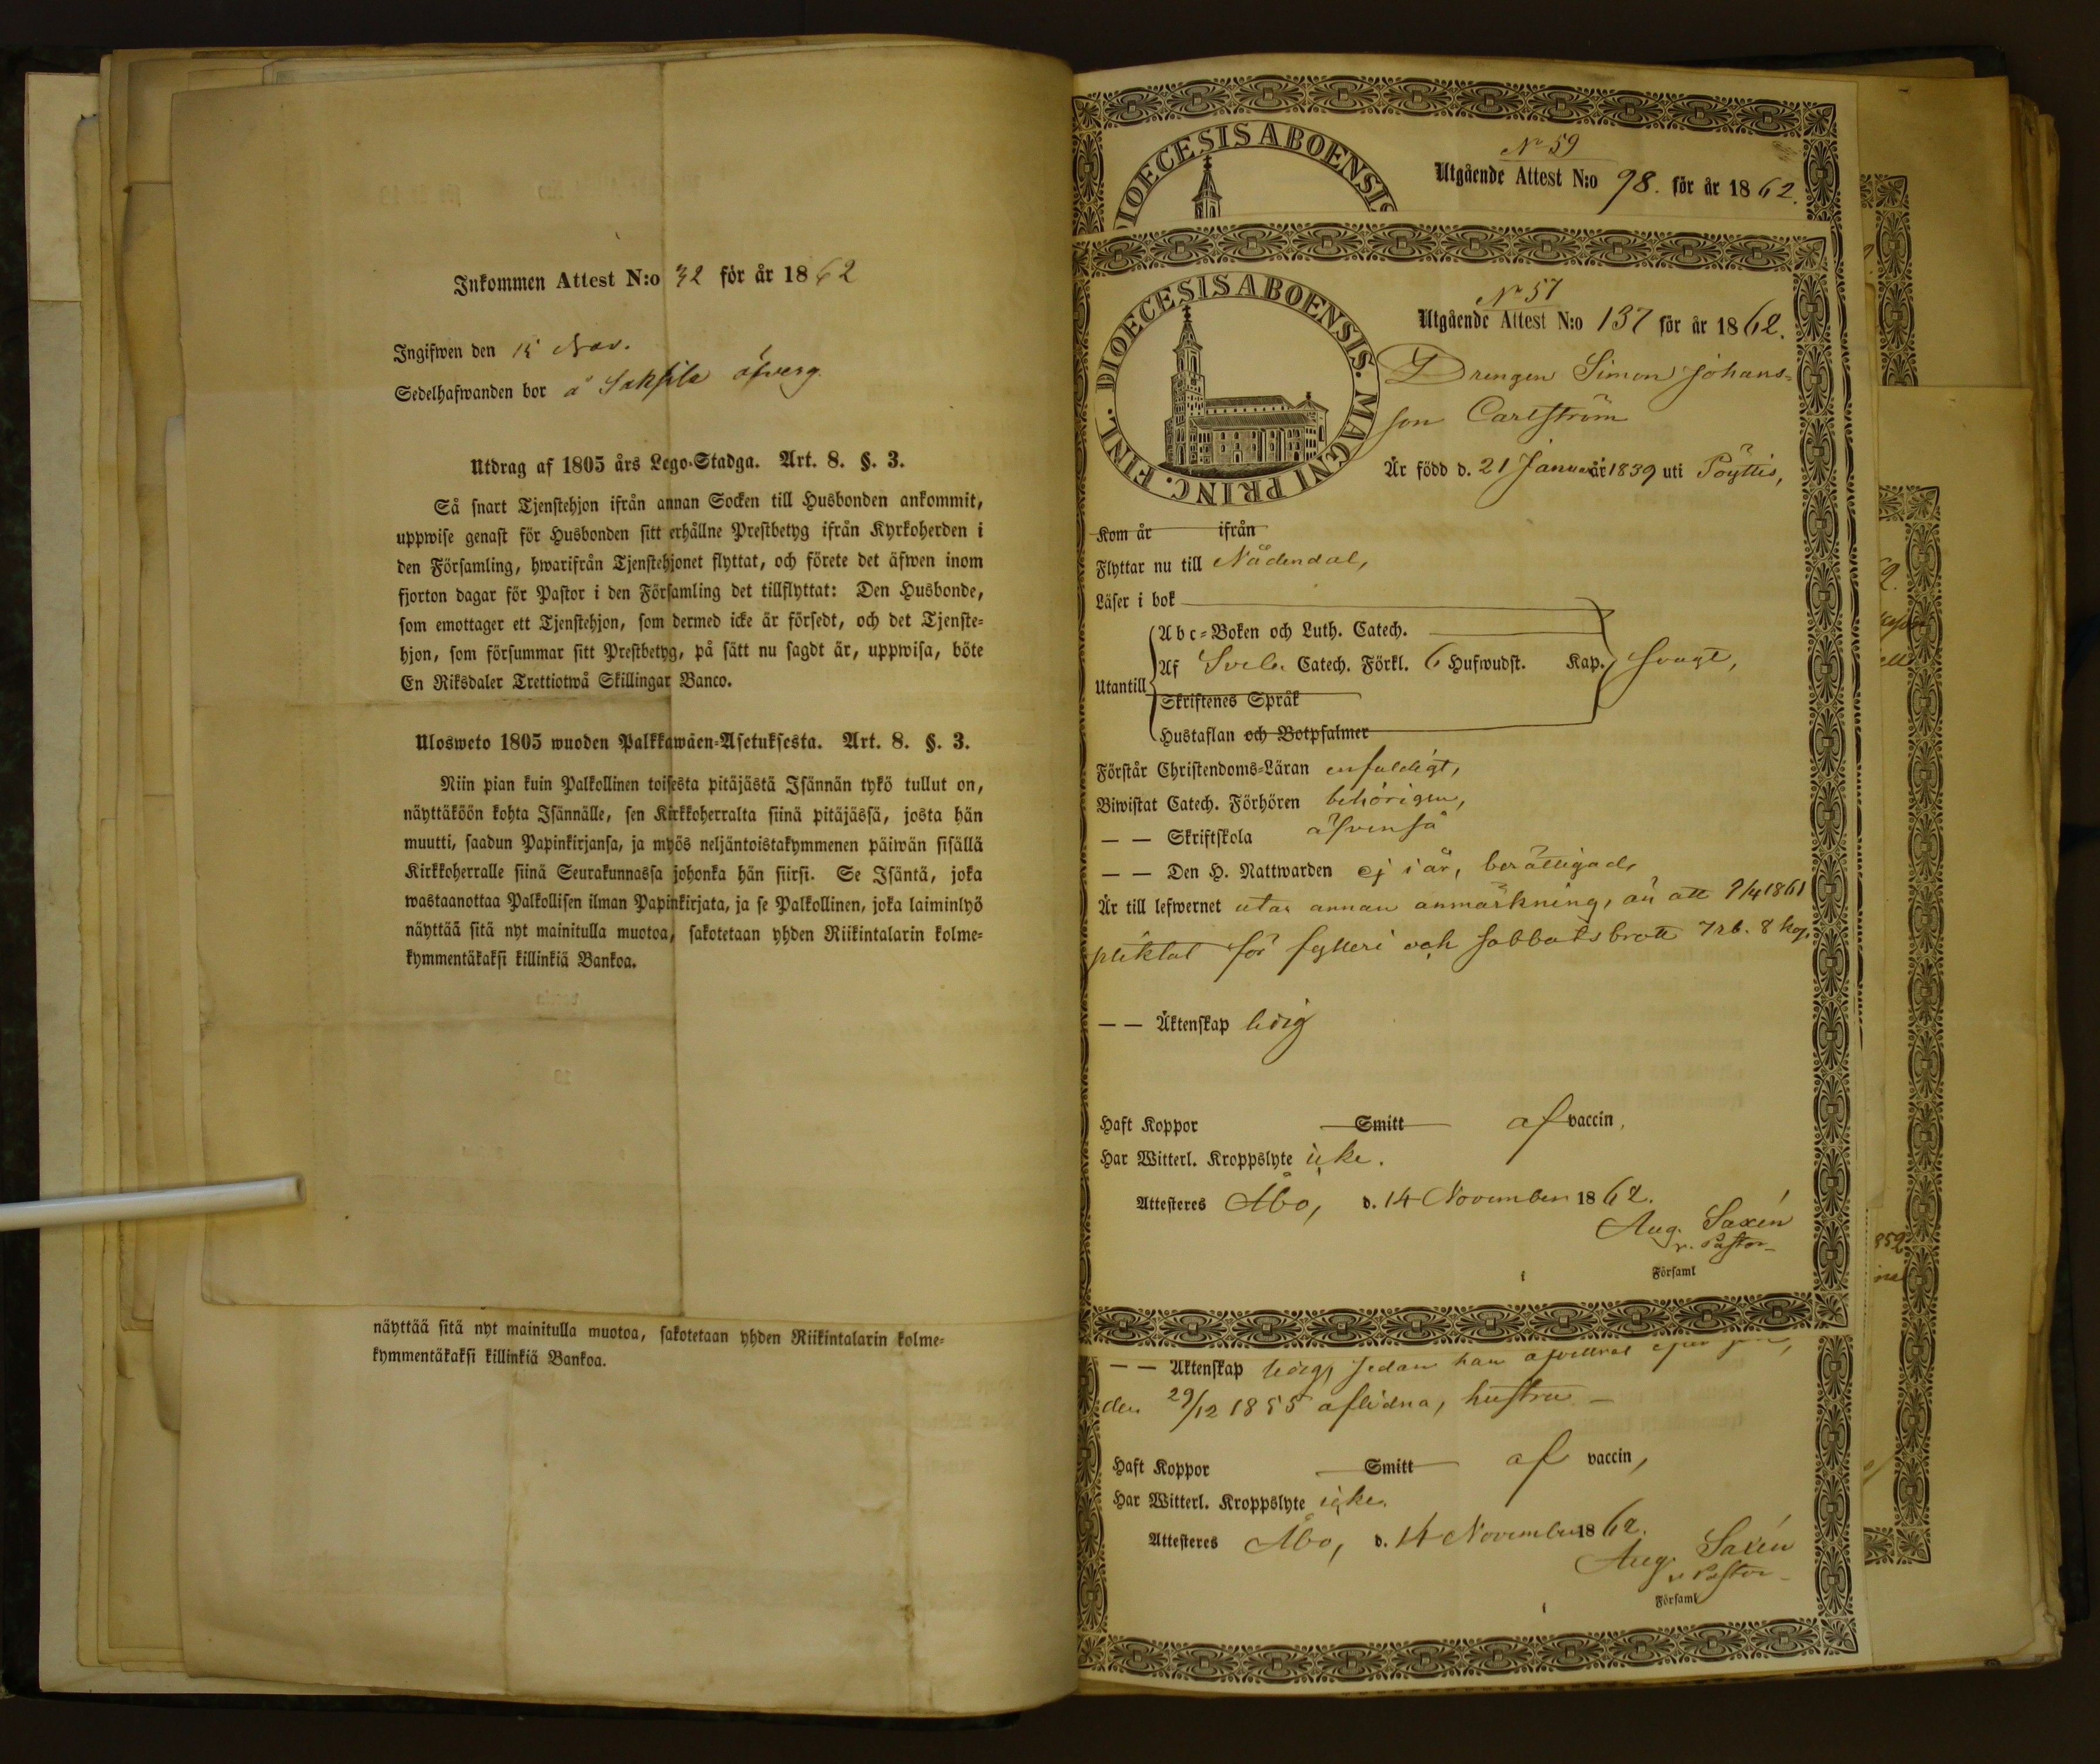 Inkommen Attest N:o 32 för år 1862
Ingifwen den 15 Nov.
Sedelhafwanden bor å
Utdrag af 1805 års Lego-Stadga. Art. 8. §. 3.
Så snart Tjenstehjon ifrån annan Socken till Husbonden ankommit,
uppwise genast för Husbonden sitt erhållne Prestbetyg ifrån Kyrkoherden i
den Församling, hwarifrån Tjenstehjonet flyttat, och förete det äfwen inom
fjorton dagar för Pastor i den Församling det tillflyttat: Den Husbonde,
som emottager ett Tjenstehjon, som dermed icke är försedt, och det Tjenste-
hjon, som försummar sitt Prestbetyg, på sätt nu sagdt är, uppwisa, böte
En Riksdaler Trettiotwå Skillingar Banco.
Ulosweto 1805 wuoden Palkkawäen-Asetuksesta. Art. 8. §. 3.
Niin pian kuin Palkollinen toisesta pitäjästä Isännän tykö tullut on,
näyttäköön kohta Isännälle, sen Kirkkoherralta siinä pitäjässä, josta hän
muutti, saadun Papinkirjansa, ja myös neljäntoistakymmenen päiwän sisällä
Kirkkoherralle siinä Seurakunnassa johonka hän siirsi. Se Isäntä, joka
wastaanottaa Palkollisen ilman Papinkirjata, ja se Palkollinen, joka laiminlyö
näyttää sitä nyt mainitulla muotoa, sakotetaan yhden Riikintalarin kolme-
kymmentäkaksi killinkiä Bankoa.
näyttää sitä nyt mainitulla muotoa, sakotetaan yhden Riikintalarin kolme-
kymmentäkaksi killinkiä Bankoa.
DIOECESIS ABOENSIS
No 59
Utgående Attest N:o 98. för år 1862.
DIOECESIS ABOENSIS. MAGNI PRINC. FINL.
No 57
Utgående Attest N:o 137 för år 1862.
Drengen Simon Johans-
son Carlström
Är född d. 21 Januari år 1839 uti Pöyttis,
Kom år ifrån
Flyttar nu till Nådendal,
Läser i bok
Utantill
Abc-Boken och Luth. Catech.
Af Sveb. Catech. Förkl. 6 Hufwudst. Kap. svagt,
Skriftenes Språk
Hustaflan och Botpsalmer
Förstår Christendoms-Läran enfaldigt,
Biwistat Catech. Förhören behörigen,
— — Skriftskola äfvenså
— — Den H. Nattwarden ej i år, berättigad,
Är till lefwernet utan annan anmärkning, än att 9/4 1861
pliktat för fylleri och sabbatsbrott 7 rb. 8 kop.
— — Äktenskap ledig
Haft Koppor Smitt af vaccin,
Har Witterl. Kroppslyte icke.
Attesteres Åbo, d. 14 November 1862.
Aug. Saxén
v. Pastor
i Församl
— — Äktenskap ledig, sedan han
den 29/12 1855 aflidna, hustru —
Haft Koppor Smitt af vaccin,
Har Witterl. Kroppslyte icke.
Attesteres Åbo, d. 14 November 1862.
Aug. Saxén
v. Pastor
i Församl